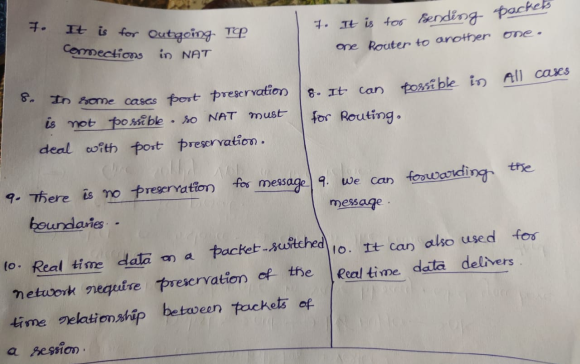 7. It is for Outgoing TCP
Connections in NAT
8. In some cases port preservation
is not possible. so NAT must
deal with port preservation.
9. There is no preservation for message
boundaries.
10. Real time data on a packet-switched
network require preservation of the
time relationship between packets of
a session.
7. It is for Sending packets
one Router to another one.
8. It can possible in All cases
for Routing.
9. we can forwarding the
message.
10. It can also used for
Real time data delivers.